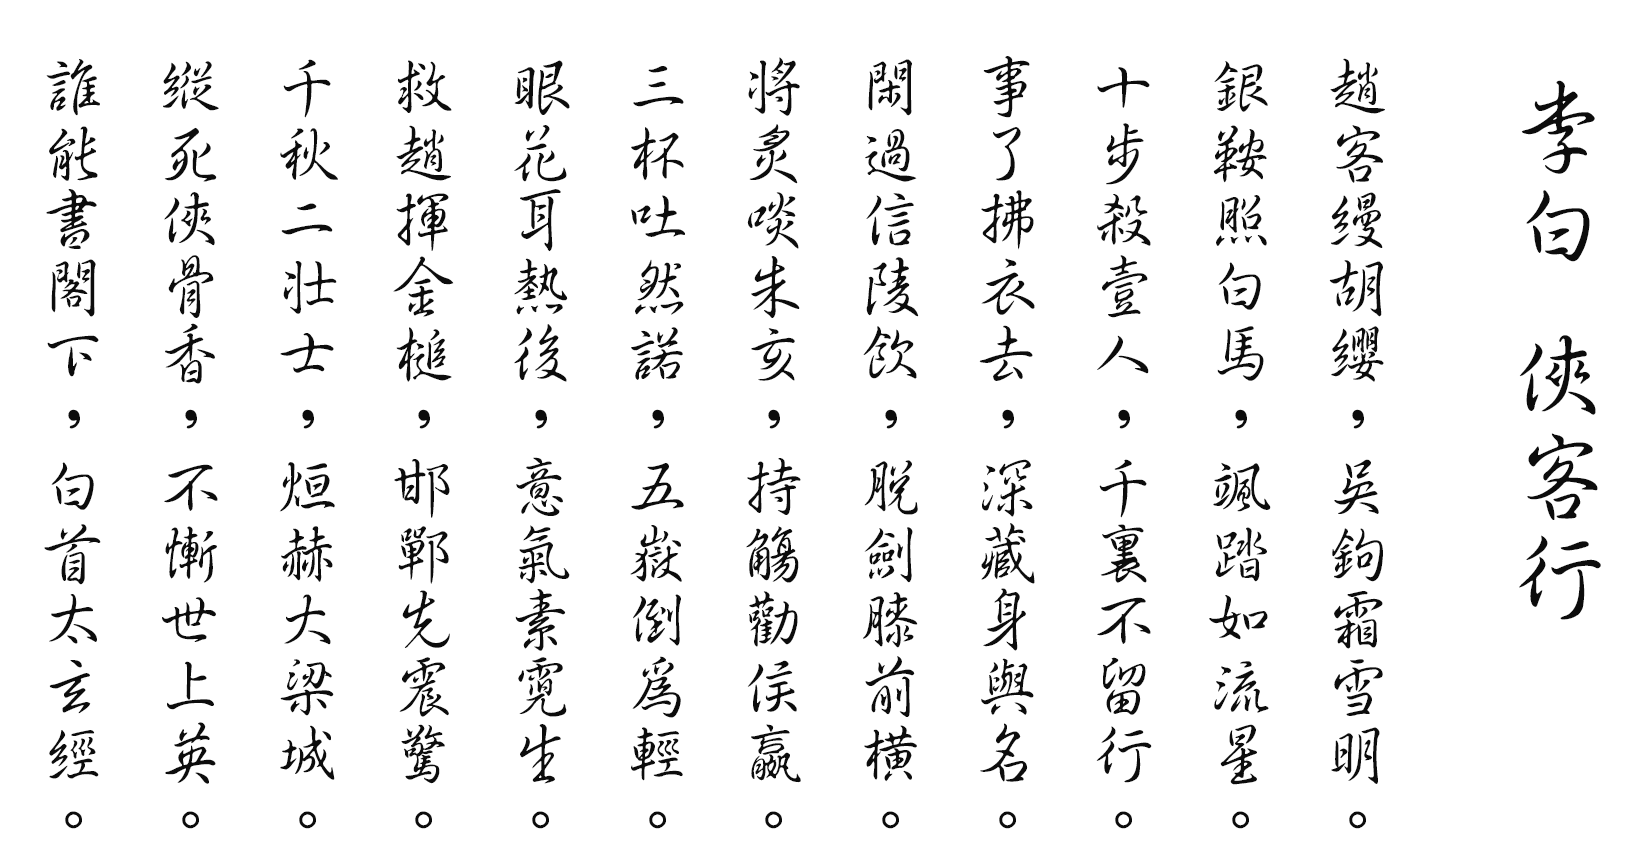 李白 俠客行
趙客縵胡纓,吳鉤霜雪明。
銀鞍照白馬,颯踏如流星。
十步殺壹人,千裏不留行。
事了拂衣去,深藏身與名。
閑過信陵飲,脫劍膝前橫。
將炙啖朱亥,持觴勸侯嬴。
三杯吐然諾,五嶽倒為輕。
眼花耳熱後,意氣素霓生。
救趙揮金槌,邯鄲先震驚。
千秋二壯士,烜赫大梁城。
縱死俠骨香,不慚世上英。
誰能書閣下,白首太玄經。